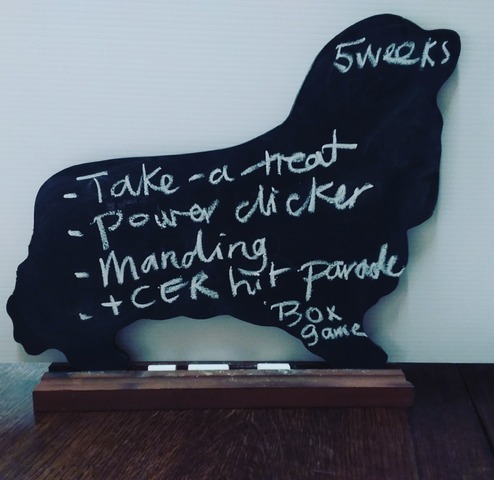 5weeks
- Take-a-treat
- power clicker
- Manding
- +CER hit parade
Box
game